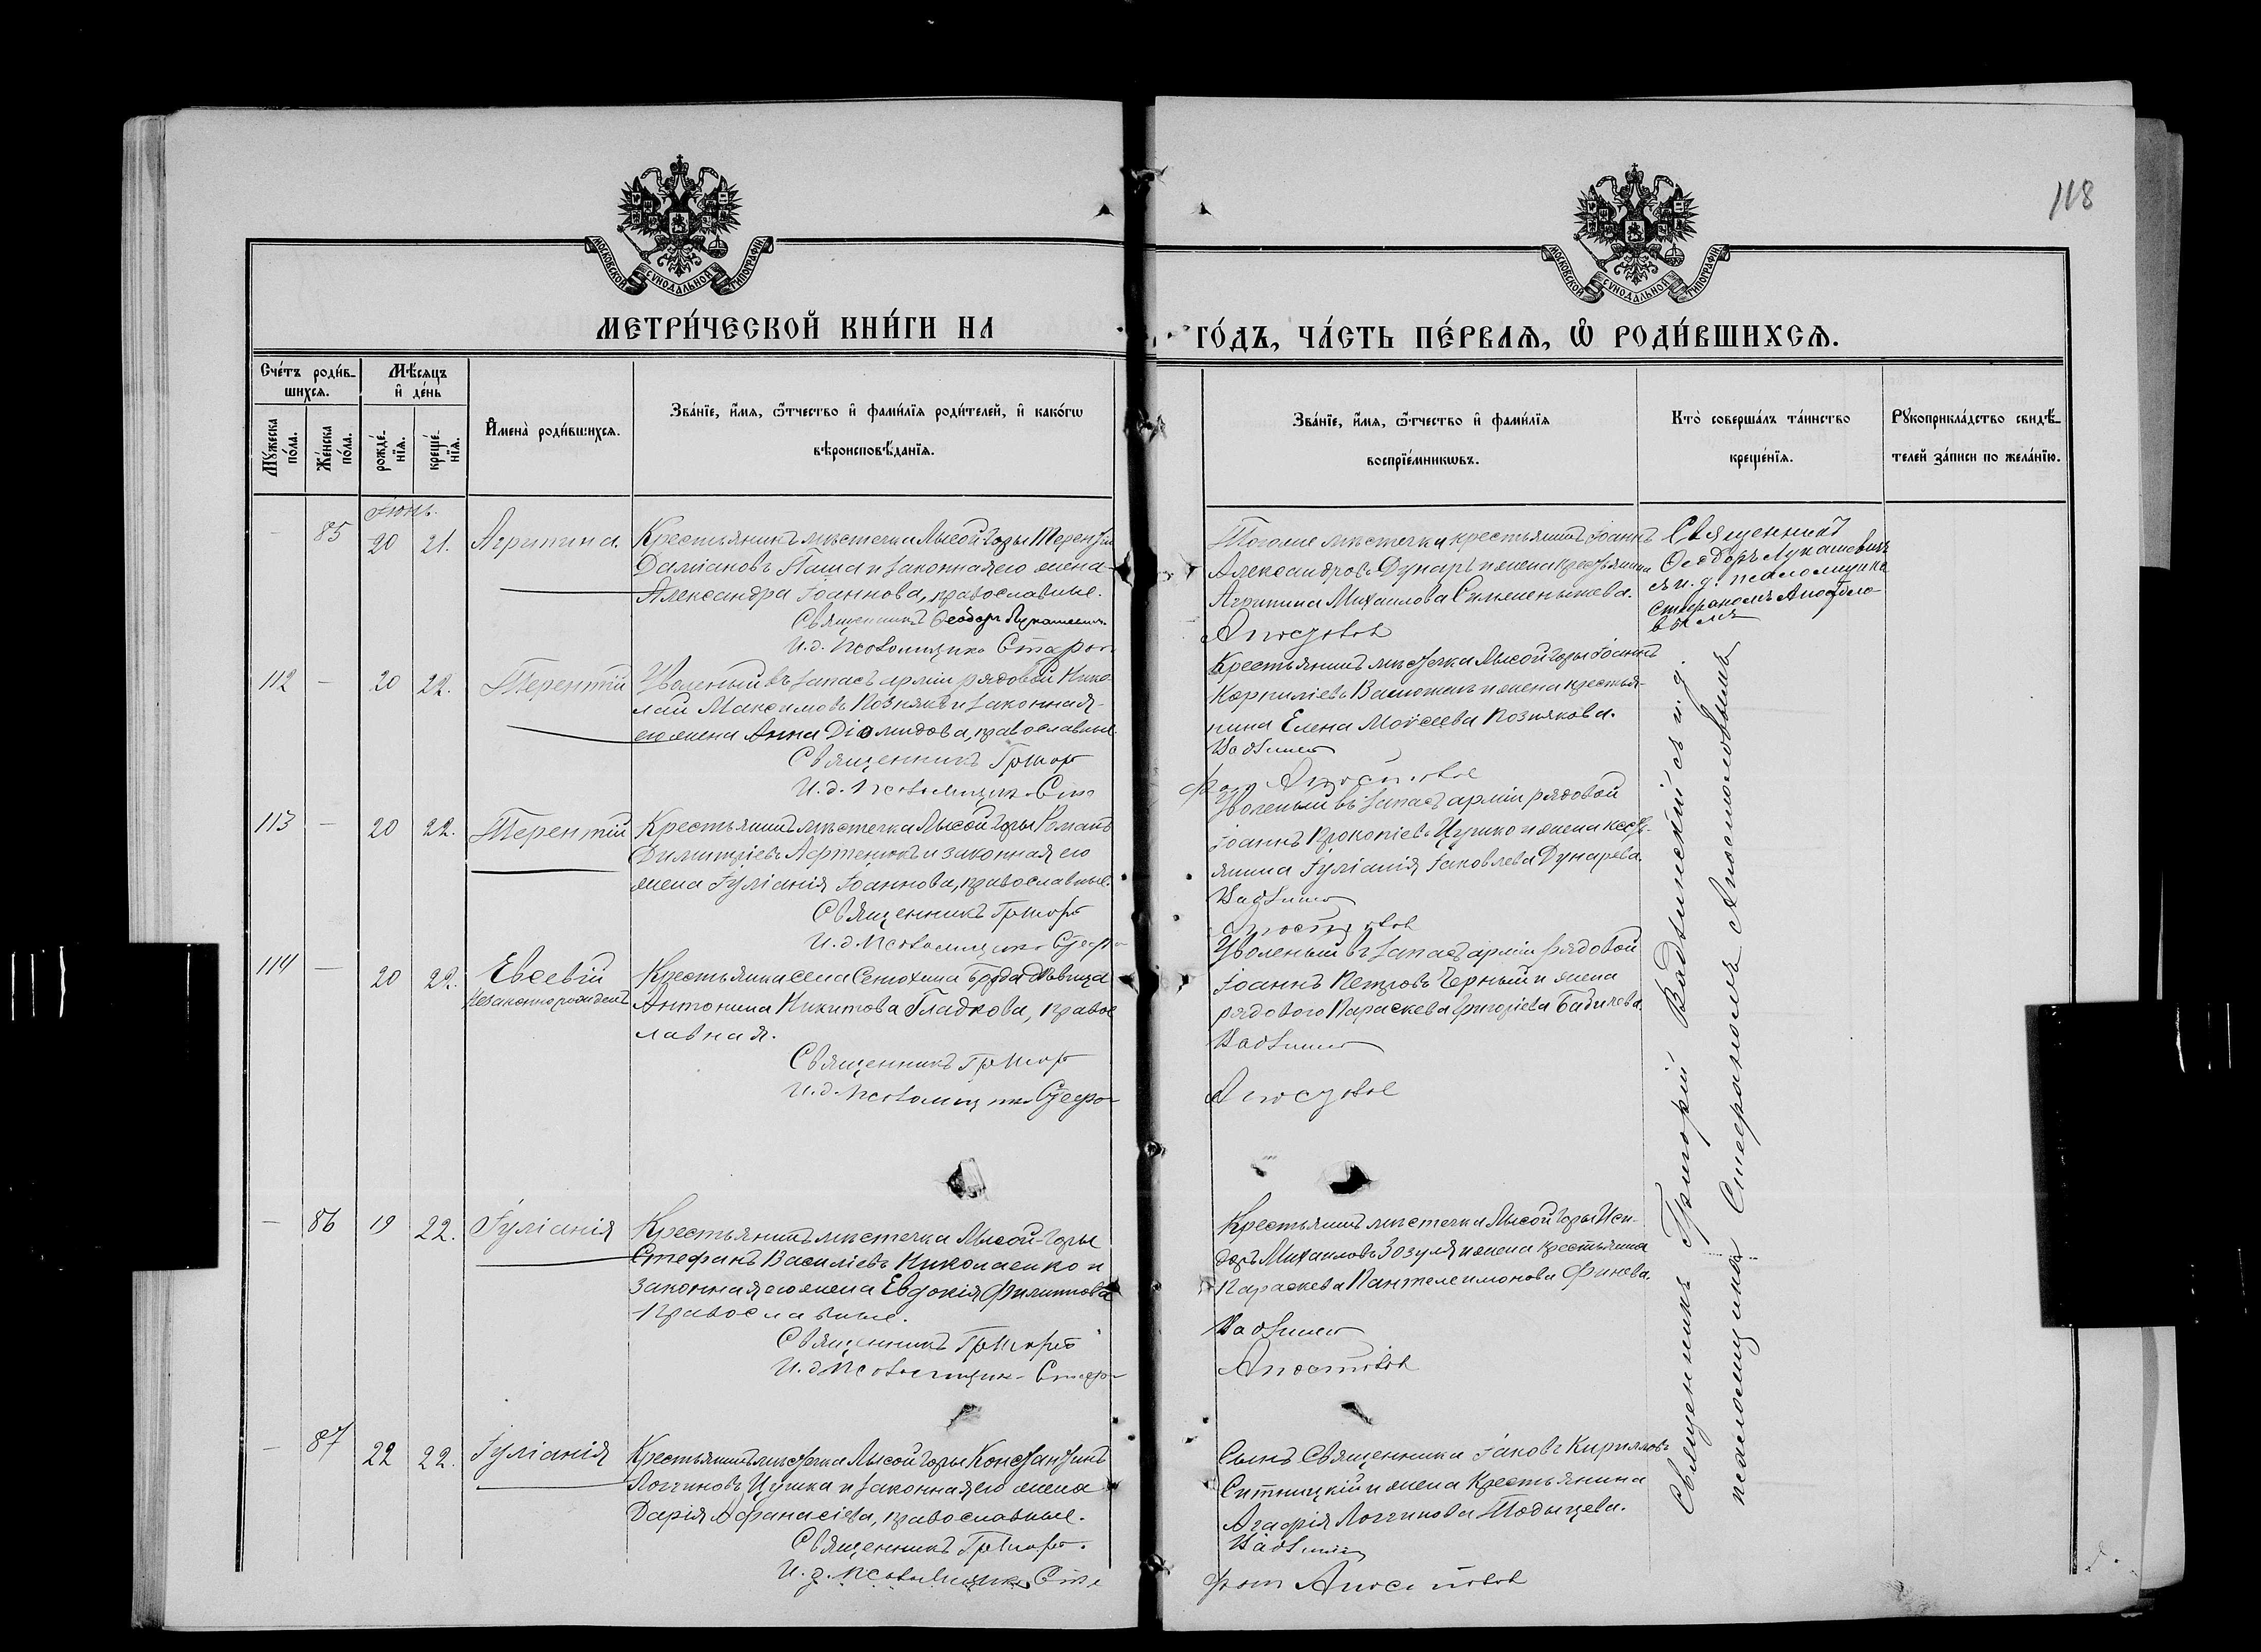 118
МОСКОВСКОЙ СУНОДАЛЬНОЙ ТИПОГРАФІИ
МОСКОВСКОЙ СУНОДАЛЬНОЙ ТИПОГРАФІИ
МЕТРИ́ЧЕСКОЙ КНИ́ГИ НА
ГО́ДЪ, ЧА́СТЬ ПЕ́РВАѦ, Ѡ РОДИ́ВШИХСѦ.
Сче́тъ роди́в-
шихсѧ.
Мѣ́сѧцъ
и де́нь
Мꙋ́жеска по́ла.
Же́нска по́ла.
рожде́-нїѧ.
креще́-нїѧ.
Имена̀ роди́вшихсѧ.
Зва́нїе, и́мѧ, ѻ́тчество и фами́лїѧ роди́телей, и како́гѡ
вѣроисповѣ́данїѧ.
Зва́нїе, и́мѧ, ѻ́тчество и фами́лїѧ
воспрїе́мникѡвъ.
Кто̀ соверша́лъ та́инство
креще́нїѧ.
Рꙋкоприкла́дство свидѣ́-
телей за́писи по жела́нїю.
Іюнь.
— 85 20 21. Агрипина.
Крестьянинъ мѣстечка Лысой Горы Терентій
Даміановъ Паша и законная его жена
Александра Іоаннова, православные.
Священникъ Ѳеодоръ Лукашевичъ
И.д. псаломщика Стефан
Тогоже мѣстечка крестьянинъ Іоаннъ
Александровъ Дунаръ и жена крестьянина
Агрипина Михаилова
Апостолов
Священникъ
Ѳеодоръ Лукашевичъ
съ и. д. псаломщика
Стефаномъ Апостоло-
вымъ
112 — 20 22. Терентій
Уволеный въ запасъ арміи рядовой Нико-
лай Максимовъ Познякъ и законная
его жена Анна Діомидова, православные.
Священникъ Григор
И.д. псаломщика Сте
Крестьянинъ мѣстечка Лысой Горы Іоаннъ
Корниліевъ и жена крестья-
нина Елена Моѵсеева Познякова.
Вадзинск
фан Апостолов
113 — 20 22. Терентій
Крестьянинъ мѣстечка Лысой Горы Романъ
Димитріевъ Афтенюкъ и законная его
жена Іуліанія Іоаннова, православные.
Священникъ Григорі
И.д. псаломщика Стефа
Уволеный въ запасъ арміи рядовой
Іоаннъ Прокопіевъ Цушко и жена кресть-
янина Іуліанія Іаковлева Дунарева.
Вадзинск
Апостолов
114 — 20 22. Евсевій
Незаконнорожденъ
Крестьянка села Сенюхина брода дѣвица
Антонина Никитова Гладкова, право-
славная.
Священникъ Григор
И.д. псаломщика Стефа
Уволеный въ запасъ арміи рядовой
Іоаннъ Петровъ Черный и жена
рядового Параскева Григоріева
Вадзинск
Апостолов
— 86 19 22. Іуліанія
Крестьянинъ мѣстечка Лысой-Горы
Стефанъ Василіевъ Николаенко и
законная его жена Евдокія Филиппова
православные.
Священникъ Григорі
И.д. псаломщика Стефа
Крестьянинъ мѣстечка Лысой Горы Иси-
доръ Михаиловъ Зозуля и жена крестьянина
Параскева Пантелеимонова
Вадзинск
Апостолов
— 87 22 22. Іуліанія
Крестьянинъ мѣстечка Лысой Горы Константинъ
Логгиновъ Цушка и законная его жена
Дарія Афанасіева, православные.
Священникъ Григорі
И.д. псаломщика Сте
Сынъ священника Іаковъ Кирилловъ
Ситницкій и жена крестьянина
Агафія Логгинова
Вадзинск
фан Апостолов
Священникъ Григорій Вадзинскій съ и. д.
псаломщика Стефаномъ Апостоловымъ